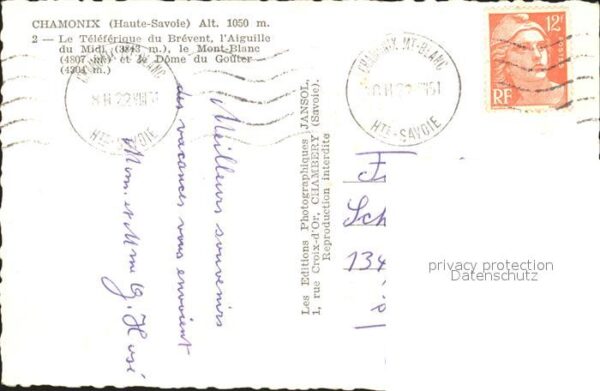 CHAMONIX (Haute-Savoie) Alt. 1050 m.
2 — Le Téléférique du Brévent, l'Aiguille
du Midi (3843 m.), le Mont-Blanc
(4807 m.) et le Dôme du Goûter
(4304 m.)
CHAMONIX MT-BLANC
8H 22 VIII 51
HTE-SAVOIE
CHAMONIX MT-BLANC
8H 22 VIII 51
HTE-SAVOIE
12F
RF
Meilleurs souvenirs
des vacances vous envoient
Mon. et Mme G.
Les Editions Photographiques JANSOL,
1, rue Croix-d'Or, CHAMBERY (Savoie).
Reproduction interdite
F
Sch
134
privacy protection
Datenschutz